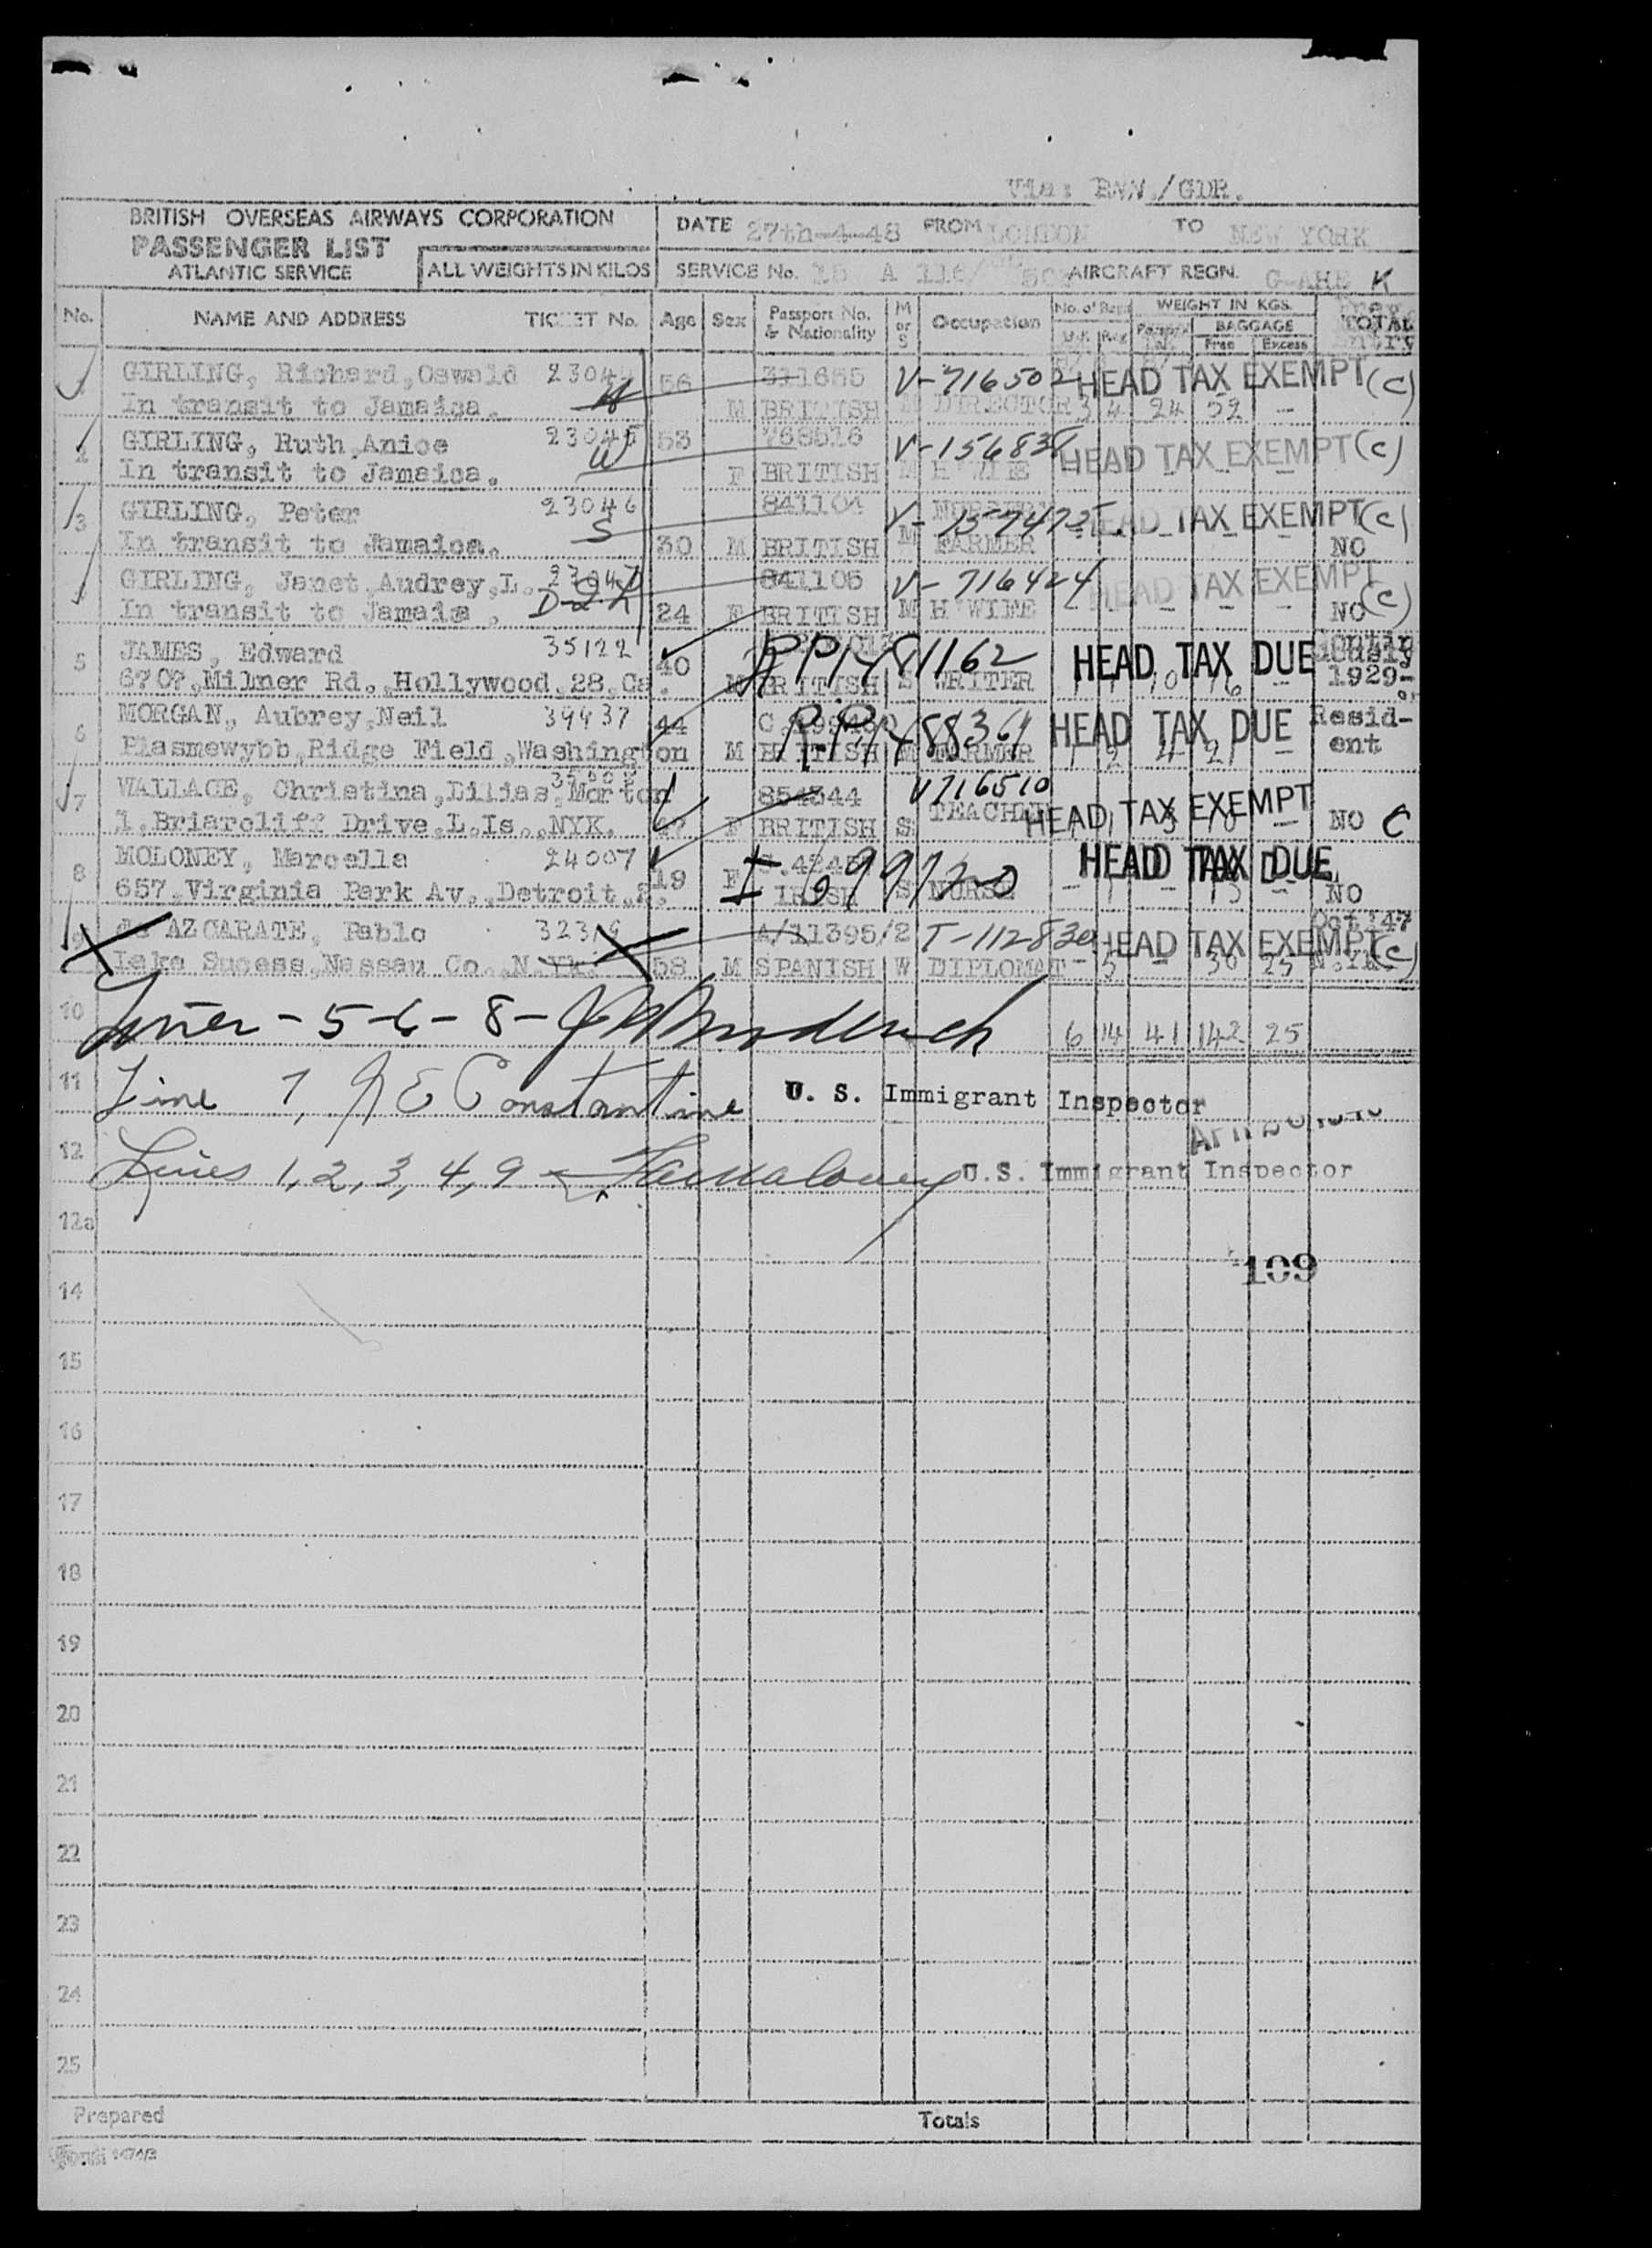 Via: BNN./GDR.
BRITISH OVERSEAS AIRWAYS CORPORATION
PASSENGER LIST
ATLANTIC SERVICE
ALL WEIGHTS IN KILOS
DATE 27th-4-48 FROM LONDON TO NEW YORK
SERVICE No. 15 A 116/ AIRCRAFT REGN. G-AHE K
No. NAME AND ADDRESS TICKET No. Age Sex Passport No. & Nationality M or S Occupation No. of Bags WEIGHT IN KGS. BAGGAGE Free Excess TOTAL
GIRLING, Richard, Oswald 56 311655 V-716502 HEAD TAX EXEMPT (C)
In transit to Jamaica. M BRITISH M DIRECTOR 3 4 24 52 -
GIRLING, Ruth, Anice 23045 53 V-156838 HEAD TAX EXEMPT (C)
In transit to Jamaica. W F BRITISH M H WIFE
3 GIRLING, Peter 23046 841104 HEAD TAX EXEMPT (C)
In transit to Jamaica. S 30 M BRITISH M FARMER NO
GIRLING, Janet, Audrey, L. 841105 V-716424 HEAD TAX EXEMPT
In transit to Jamaica. 24 F BRITISH M H WIFE NO (C)
5 JAMES, Edward 35122 40 RPM 81162 HEAD TAX DUE
6707, Milner Rd., Hollywood, 28, Ca. M BRITISH S WRITER 1929-
6 MORGAN, Aubrey, Neil 39437 44 HEAD TAX DUE Resid-
Plasmewybb, Ridge Field, Washington M BRITISH M FARMER ent
7 WALLACE, Christina, Dilias, Morton 854344 V716510 HEAD TAX EXEMPT
1, Briarcliff Drive, L. Is., NYK. F BRITISH S TEACHER NO C
8 MOLONEY, Marcella 24007 HEAD TAX DUE
657, Virginia Park Av., Detroit, 2. 19 F IRISH S NURSE I 699120 NO
9 de AZCARATE, Pablo A/11395/2 T-112830 HEAD TAX EXEMPT (C) Oct '47
Lake Sucess, Nassau Co., N.Yk. 58 M SPANISH W DIPLOMAT - 3 30 25 N.Yk.
10 Lines - 5-6-8- 6 14 41 142 25
11 Line 7, E Constantine U. S. Immigrant Inspector
12 Lines 1, 2, 3, 4, 9 U.S. Immigrant Inspector
12a
109
14
15
16
17
18
19
20
21
22
23
24
25
Prepared Totals